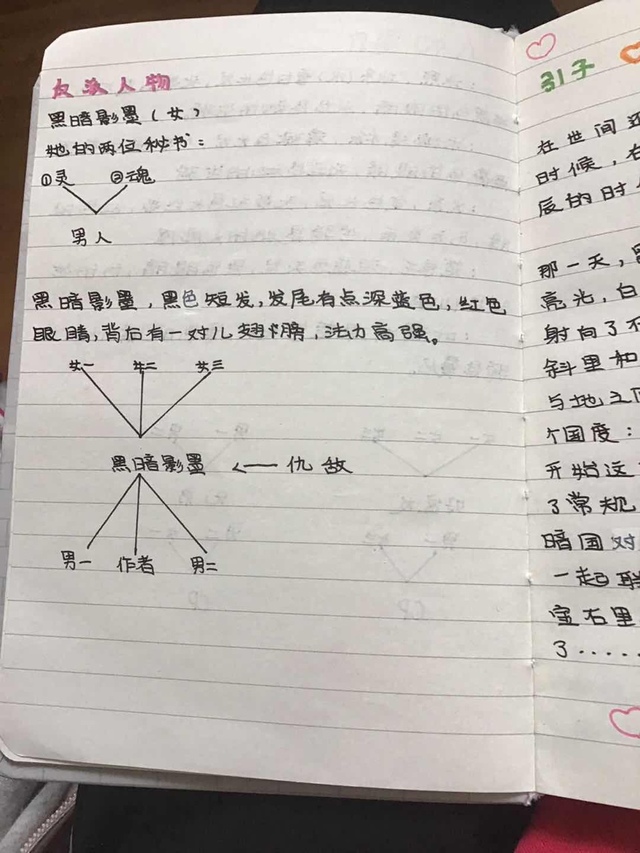 反派人物
黑暗影墨(女)
她的两位秘书:
①灵 ②魂
男人
黑暗影墨,黑色短发,发尾有点深蓝色,红色
眼睛,背后有一对儿翅膀,法力高强。
女一 女二 女三
黑暗影墨 ← 仇敌
男一 作者 男二
引子
在世间还
时候,在
辰的时
那一天,
亮光,白
射向了不
斜里和
与地之间
个国度:
开始这
了常规
暗国对
一起联
宝石里
了.....